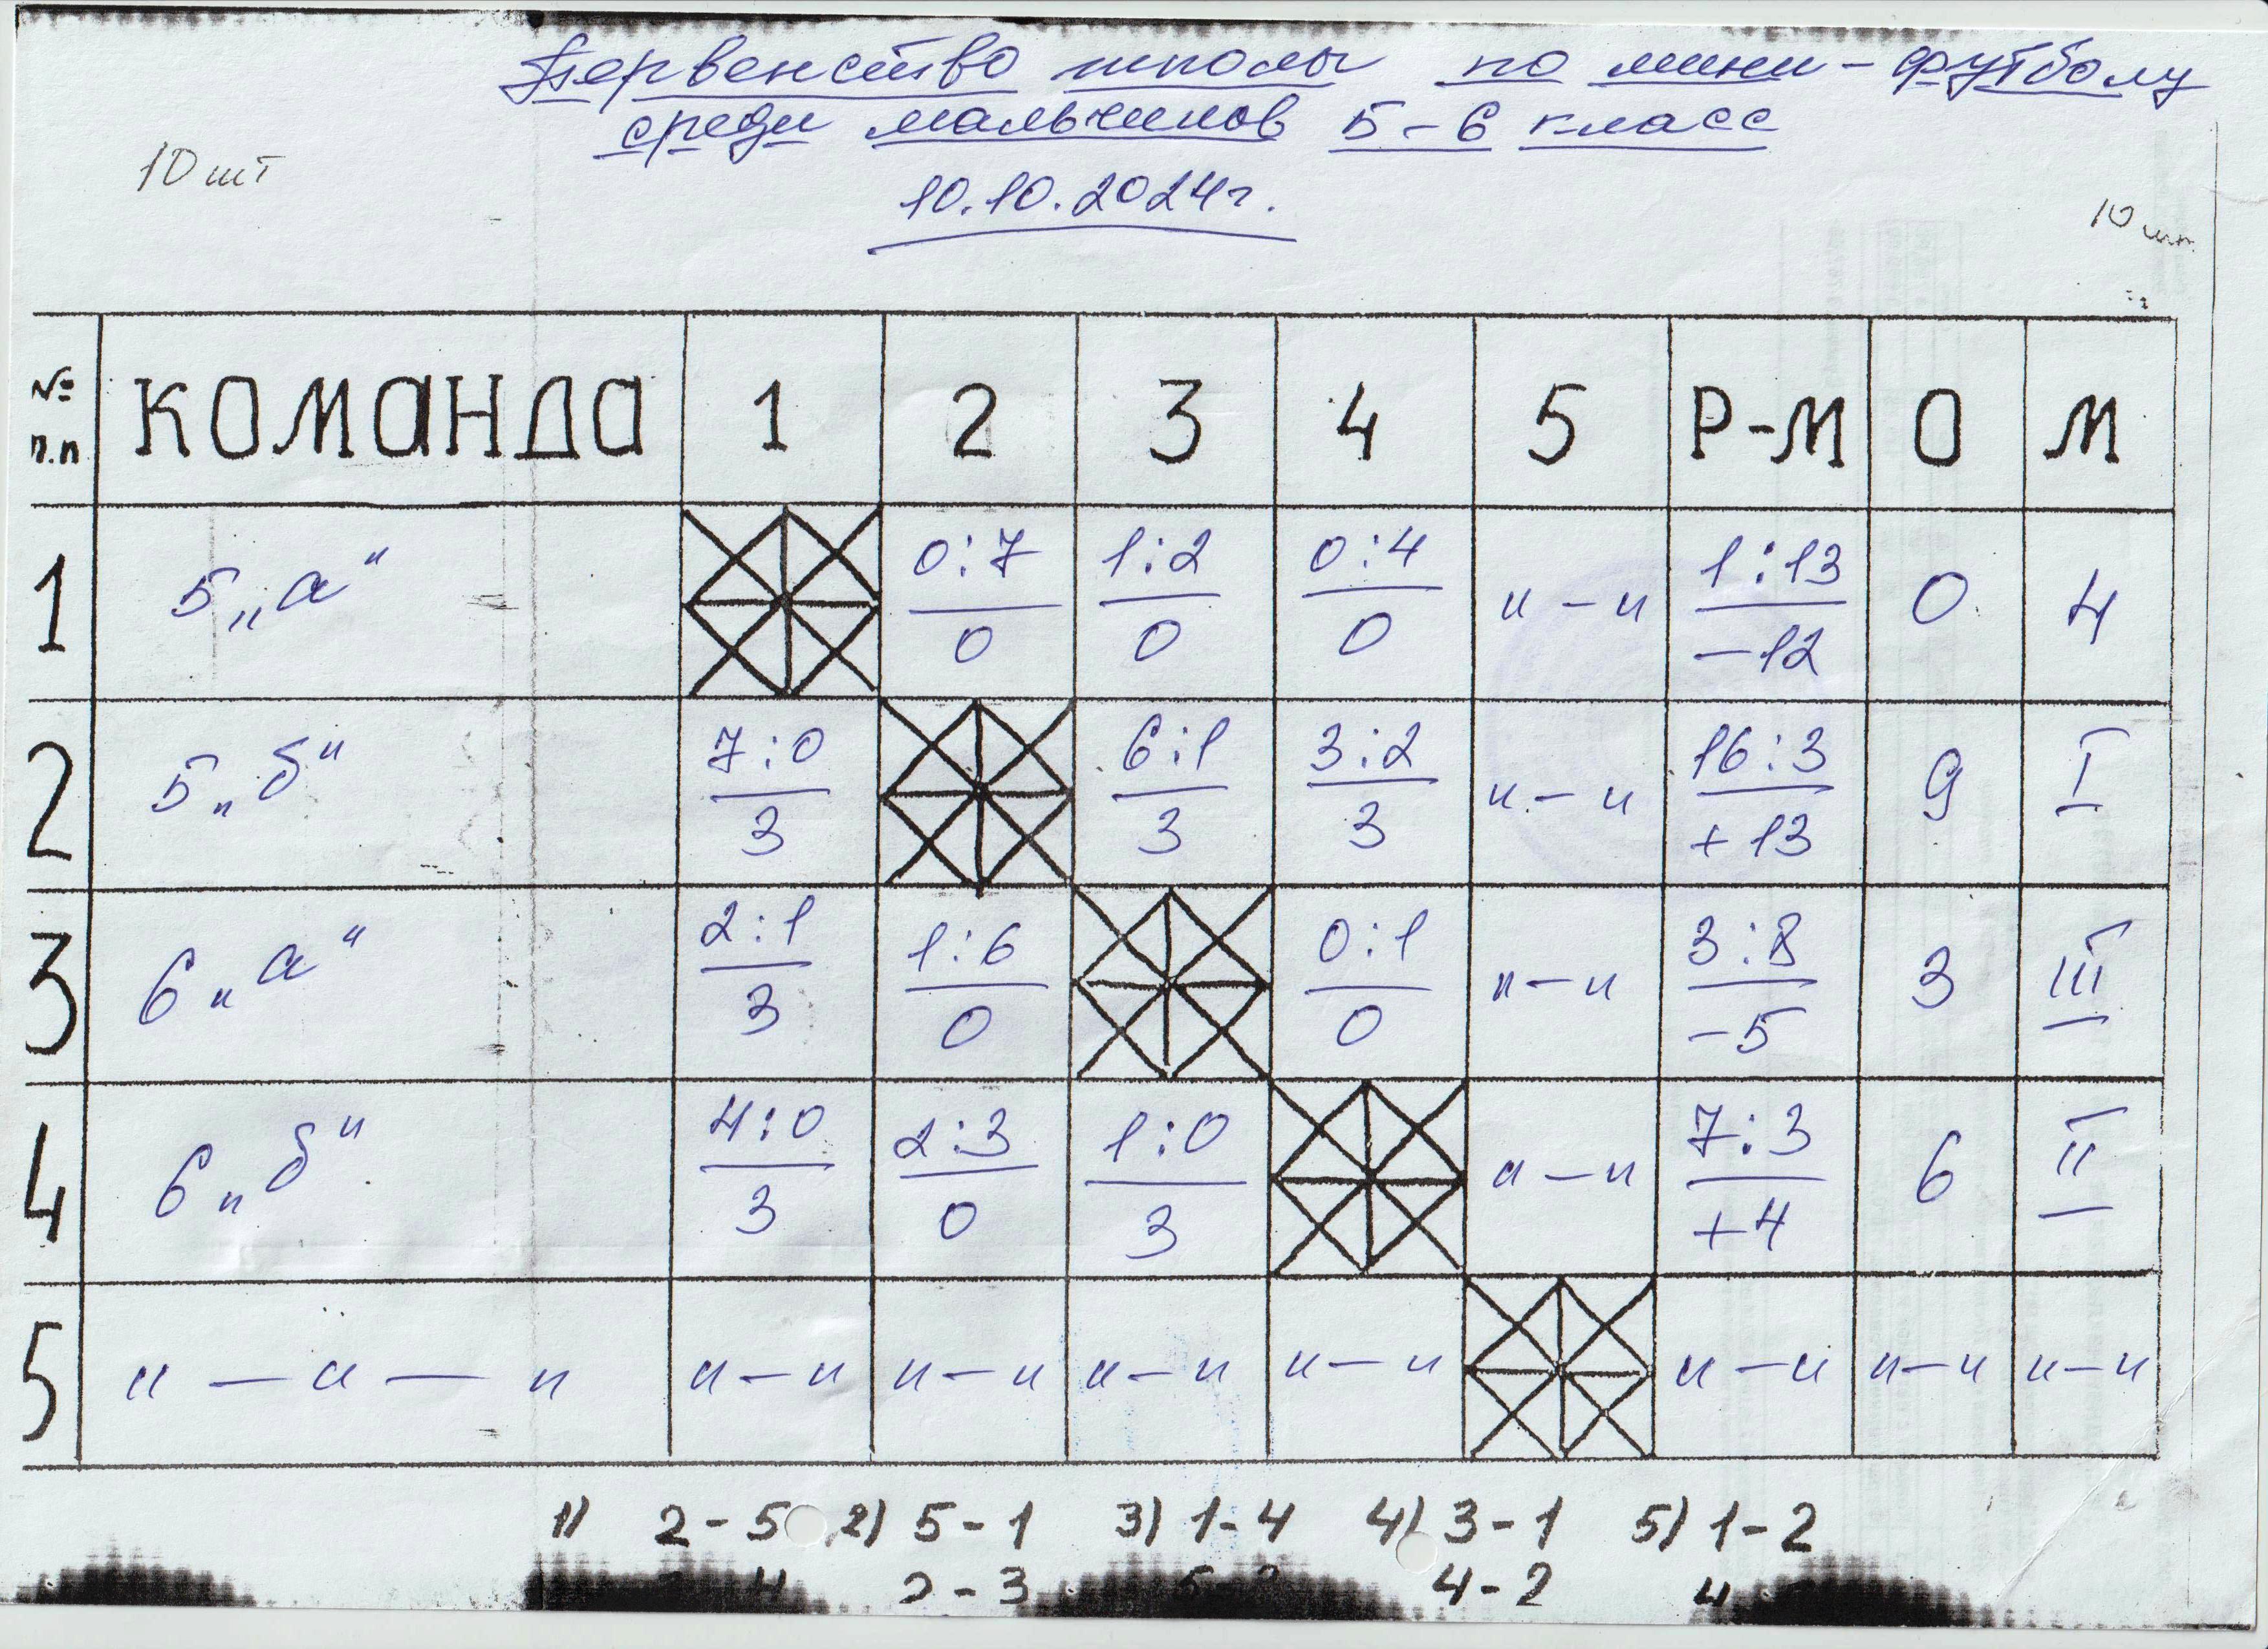 Первенство школы по мини-футболу
среди мальчиков 5-6 класс
10 шт
10.10.2024г.
10 шт.
№ п.п КОМАНДА 1 2 3 4 5 Р-М О М
1 5 „а“ 0:7 1:2 0:4 и - и 1:13 0 4
0 0 0 -12
2 5 „б“ 7:0 6:1 3:2 и - и 16:3 9 I
3 3 3 +13
3 6 „а“ 2:1 1:6 0:1 и - и 3:8 3 III
3 0 0 -5
4 6 „б“ 4:0 2:3 1:0 и - и 7:3 6 II
3 0 3 +4
5 и — и — и и - и и - и и - и и - и и - и и - и и - и
1) 2-5 2) 5-1 3) 1-4 4) 3-1 5) 1-2
4 2-3 5 4-2 4